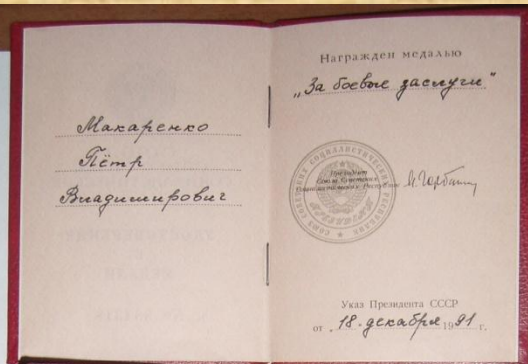 Макаренко
Пётр
Владимирович
Награжден медалью
„За боевые заслуги"
Президент
Союза Советских
Социалистических Республик
М. Горбачев
Указ Президента СССР
от „18" декабря 1991 г.